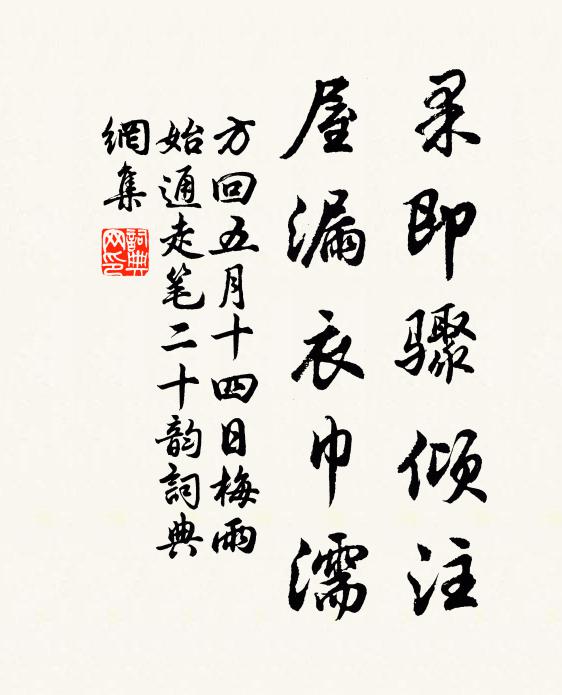 果即骤倾注
屋漏衣巾濡
方回五月十四日梅雨
始通走笔二十韵詞典
網集
詞典
网印